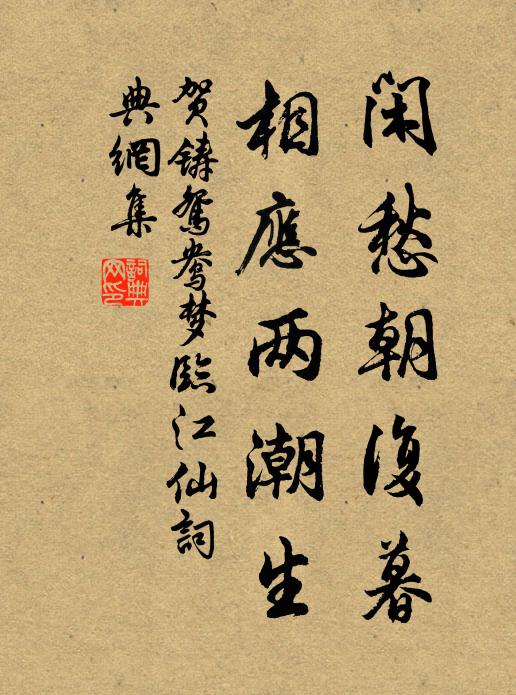 闲愁朝復暮
相應两潮生
贺鑄鴛鴦梦臨江仙詞
典網集
詞典
网印